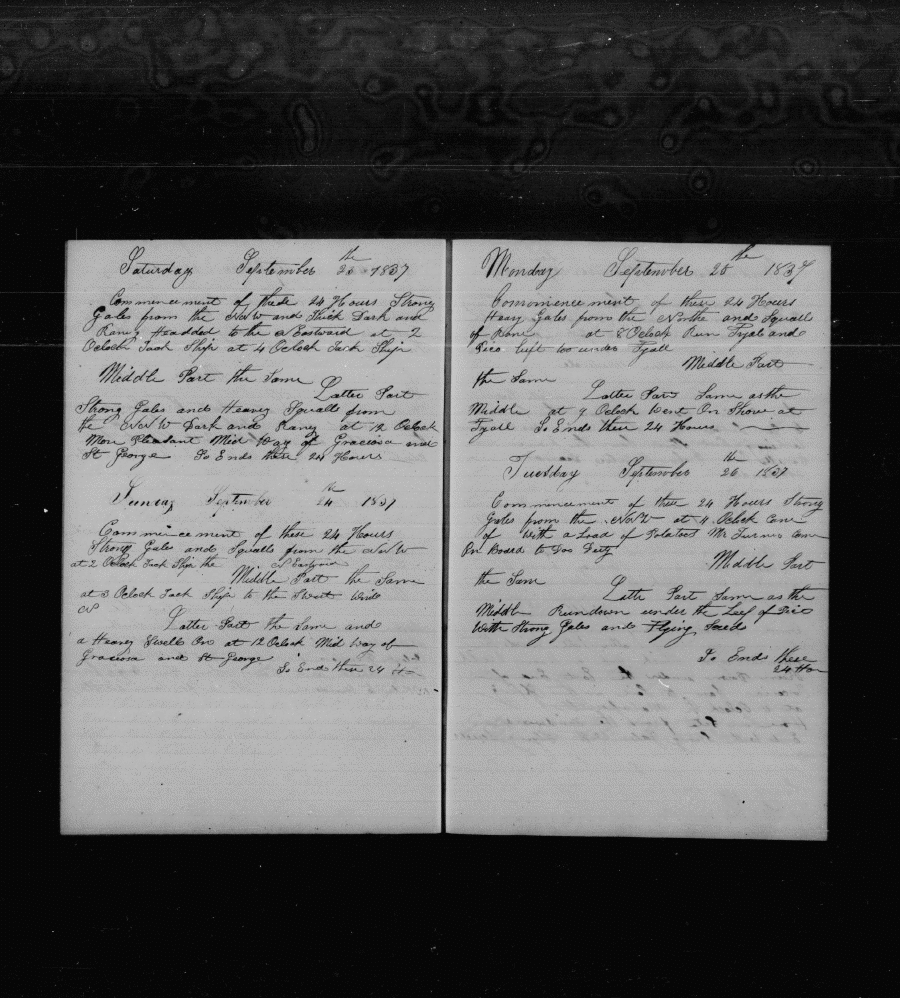 Saturday September 23 th 1837
Commencement of these 24 Hours Strong
Gales from the NNW and Thick Dark and
Raney Headded to the N Eastward at 2
Oclock Tack Ship at 4 Oclock Tack Ship
Middle Part the Same
Latter Part
Strong Gales and Heavey Squalls from
the NNW Dark and Raney at 12 Oclock
Mon Pleadant Mid Way of Graciosa and
St George So Ends these 24 Hours
Sunday September 24 th 1837
Commencement of these 24 Hours
Strong Gales and Squalls from the NNW
at 2 Oclock Tack Ship the N Eastward
Middle Part the Same
at 3 Oclock Tack Ship to the Westward
Latter Part the Same and
a Heavey Swell On at 12 Oclock Mid Way of
Graciosa and St George
So Ends these 24 Ho
Monday September 25 th 1837
Commencement of these 24 Hours
Heavy Gales from the Northe and Squalls
of Rain at 8 Oclock Run Fyal and
Pico left to under Fyall
Middle Part
the Same
Latter Part Same as the
Middle at 9 Oclock Went On Shore at
Fyall So Ends these 24 Hours
Tuesday September 26 th 1837
Commencement of these 24 Hours Strong
Gales from the at 4 Oclock Came
of With a Load of Potatoes Mr Turner Came
On Board to Dos Duty
Middle Part
the Same
Latter Part Same as the
Middle Rundown under the Lee of Pico
With Strong Gales and Flying Scud
So Ends these
24 Hou